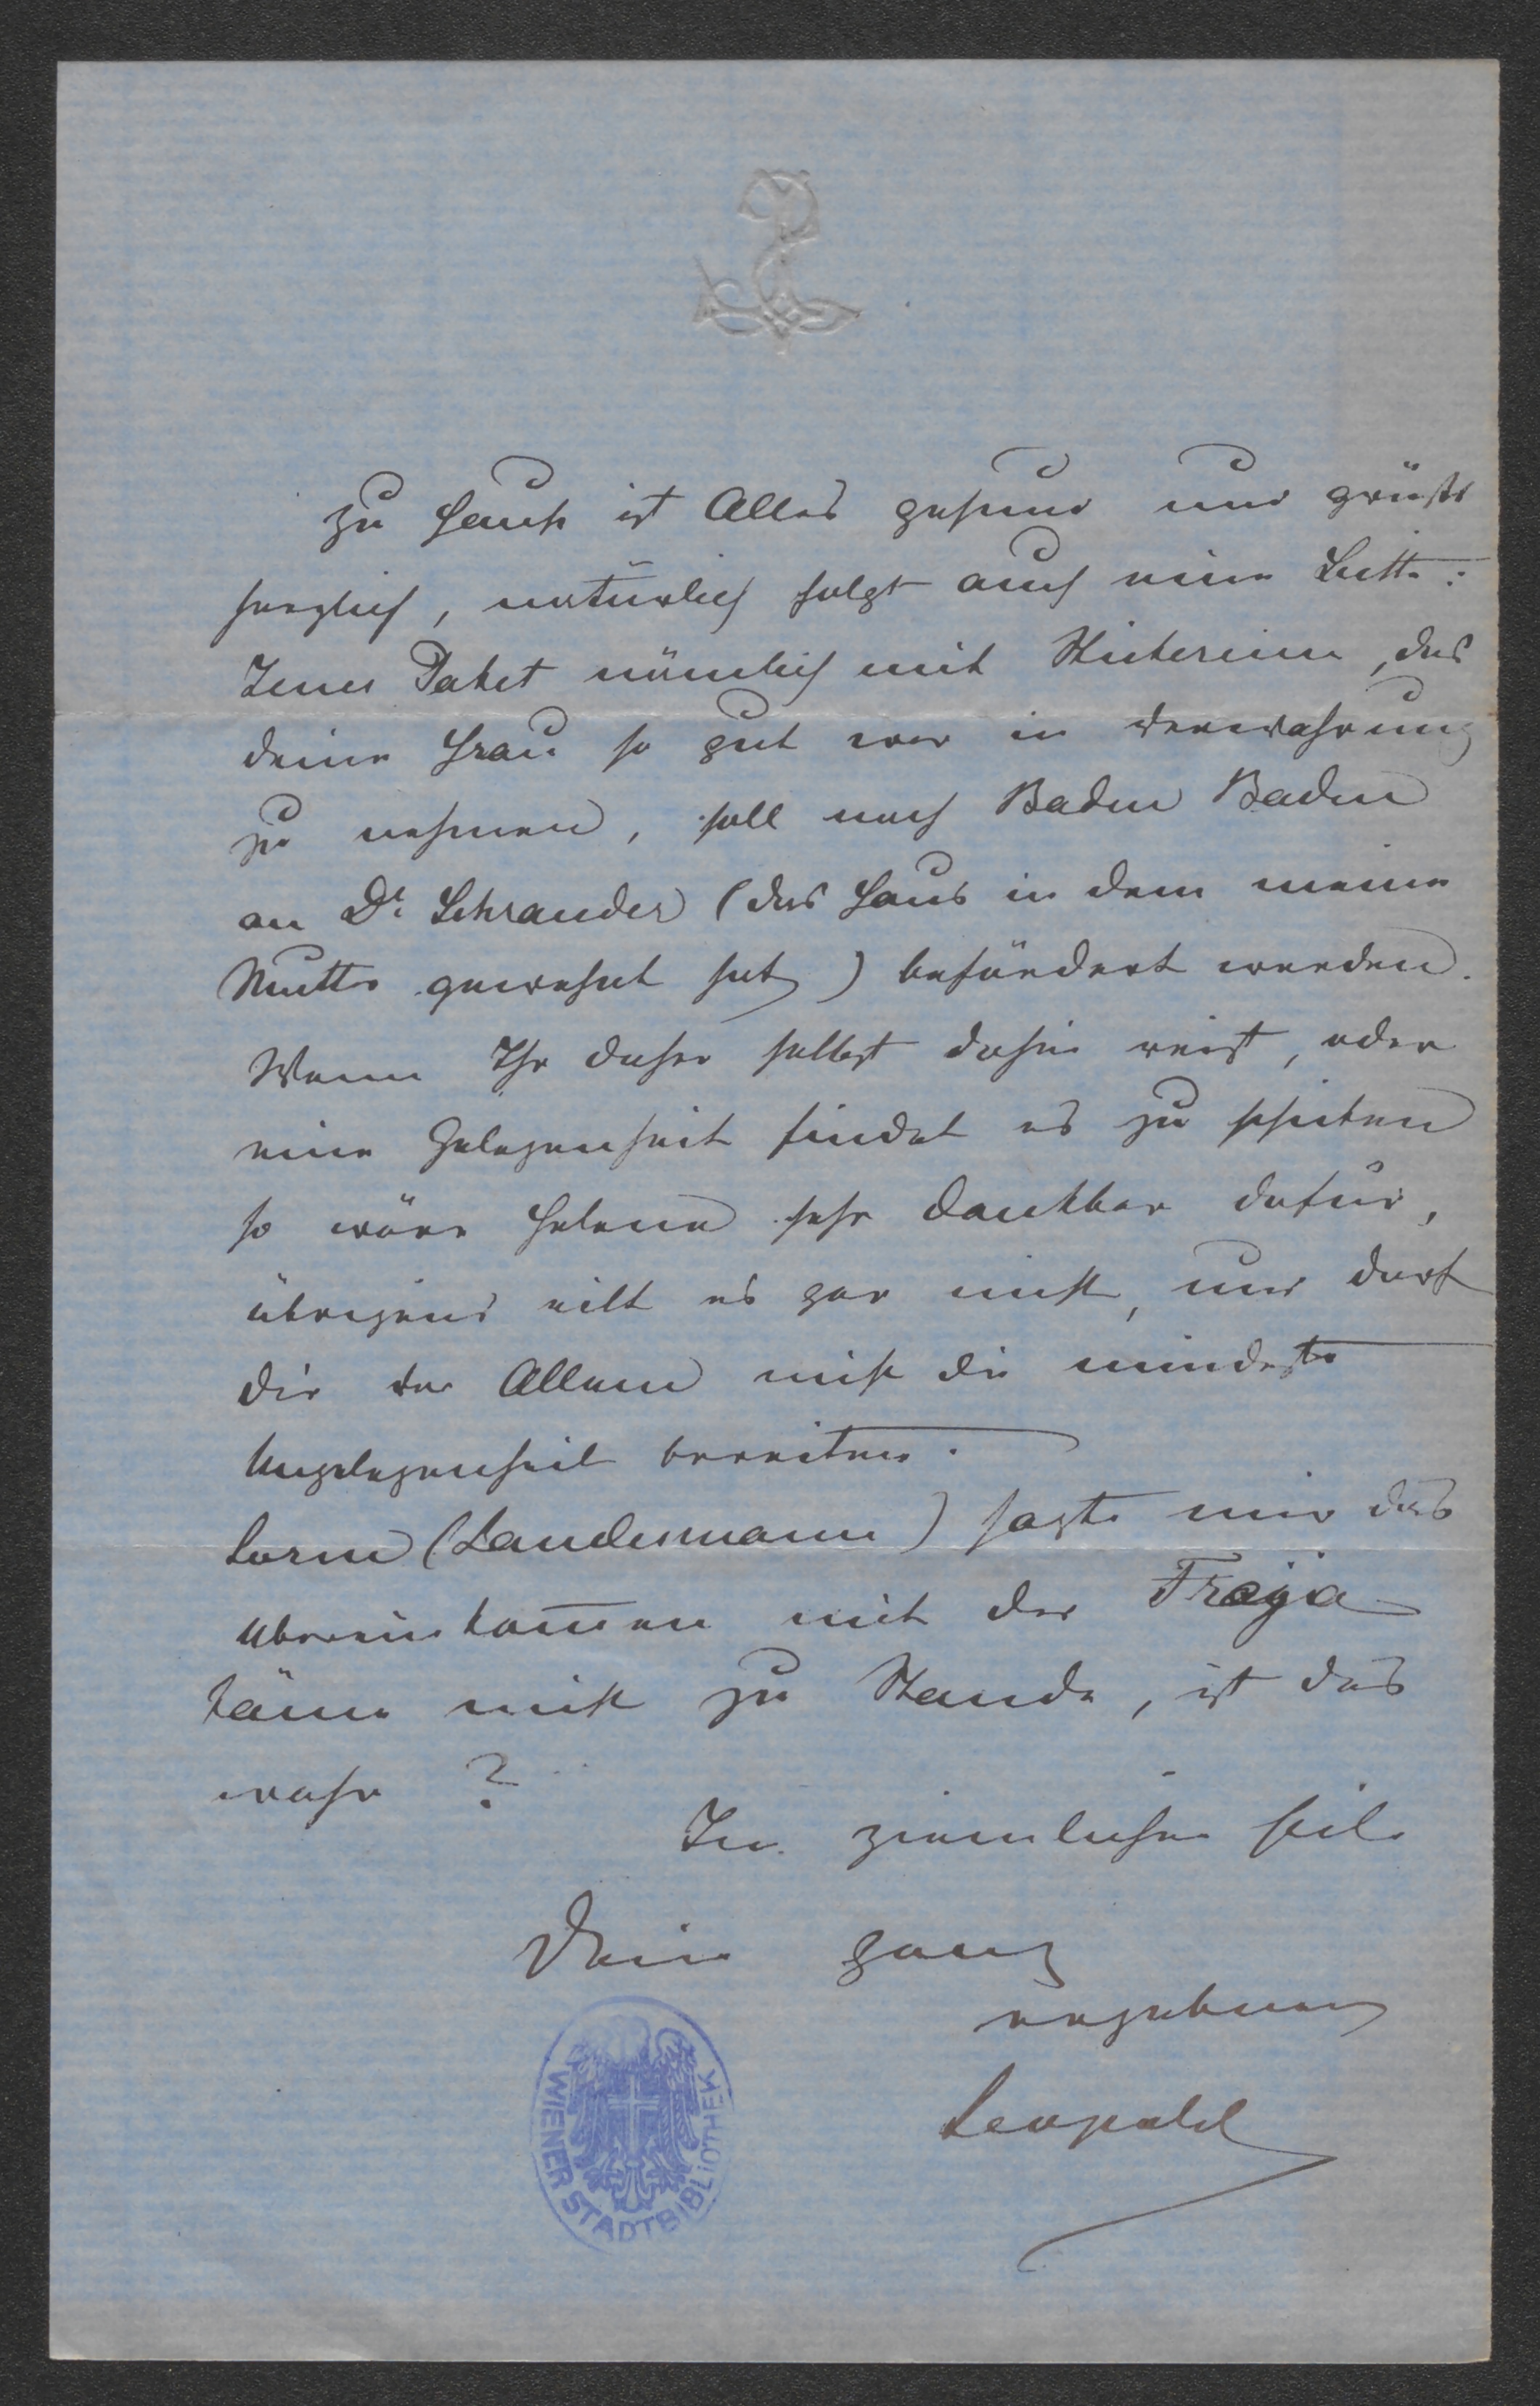 Zu Hause ist Alles gesund und grüßt
herzlich, natürlich folgt auch eine Bitte:
Jenes Paket nämlich mit Stickereien, das
deine Frau so gut war in Verwahrung
zu nehmen, soll nach Baden Baden
an Dr. Schrauder (das Haus in dem meine
Mutter gewohnt hat) befördert werden.
Wenn Ihr daher selbst dahin reist, oder
eine Gelegenheit findet es zu schicken
so wäre Helene sehr dankbar dafür,
übrigens eilt es gar nicht, und darf
dir vor Allem nicht die mindeste
Ungelegenheit bereiten.
Lorm (Landesmann) sagte mir das
Übereinkommen mit der Freja
käme nicht zu Stande, ist das
wahr?
In ziemlicher Eile
Dein ganz
ergebener
Leopold
WIENER STADTBIBLIOTHEK